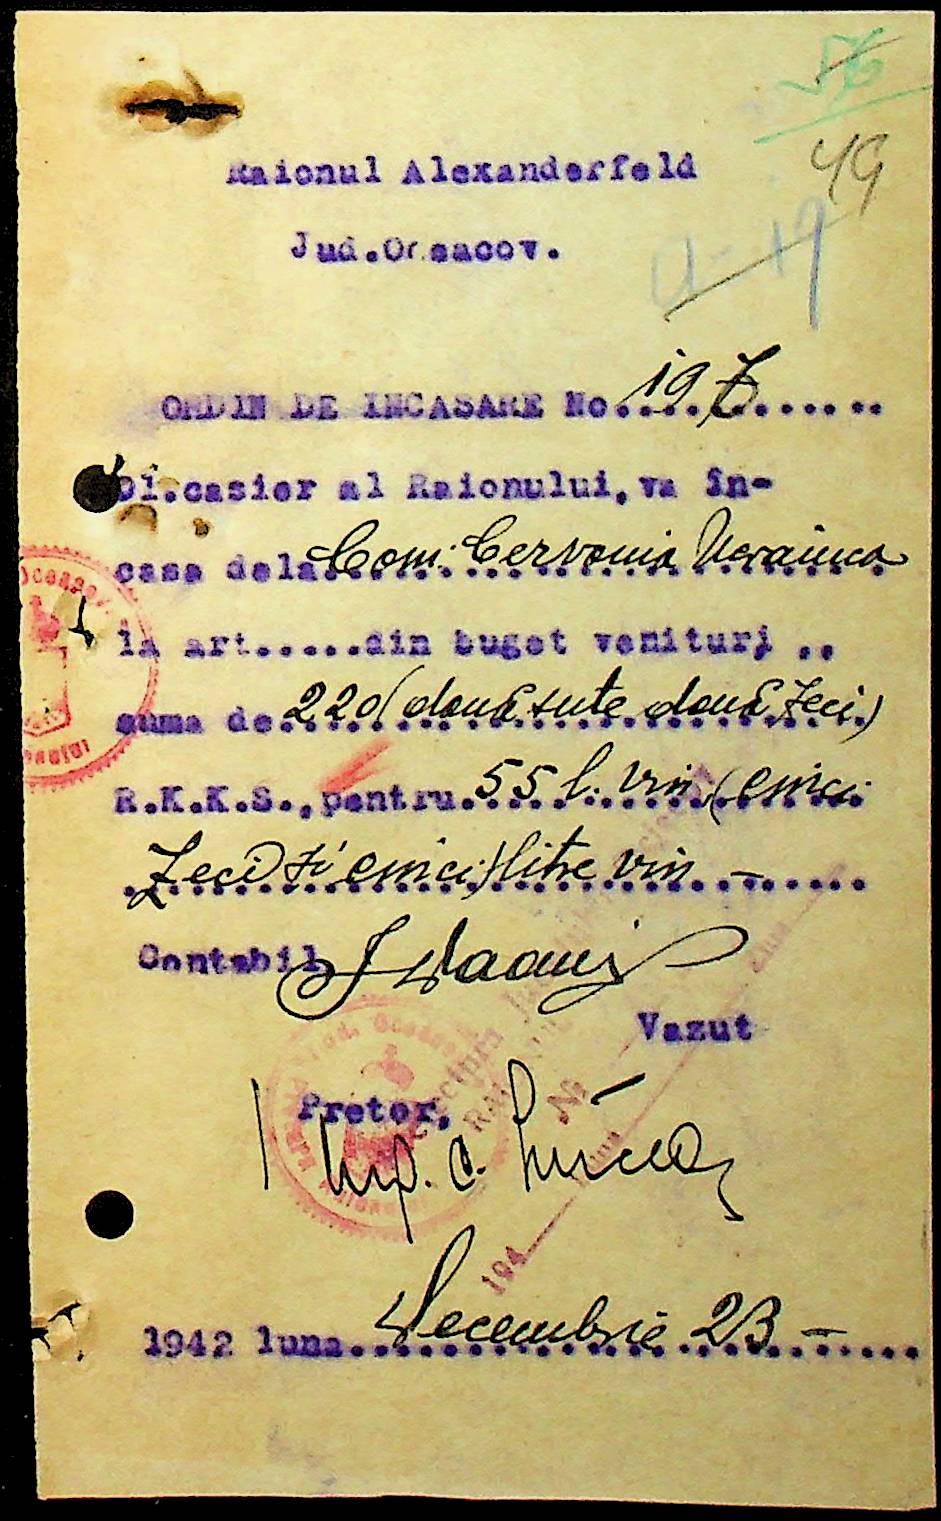 56
49
a-19
Raionul Alexanderfeld
Jud.Oceacov.
ORDIN DE INCASARE No. 197
Dl.casier al Raionului, va în-
casa dela Com. Cervonia Ucrainca
la art.....din buget venituri ..
suma de 220 (două sute două zeci)
R.K.K.S., pentru 55 l. vin (cinci
zeci și cinci) litre vin -
Contabil
Vazut
Pretor,
No
194
1942 luna Decembrie 23 -